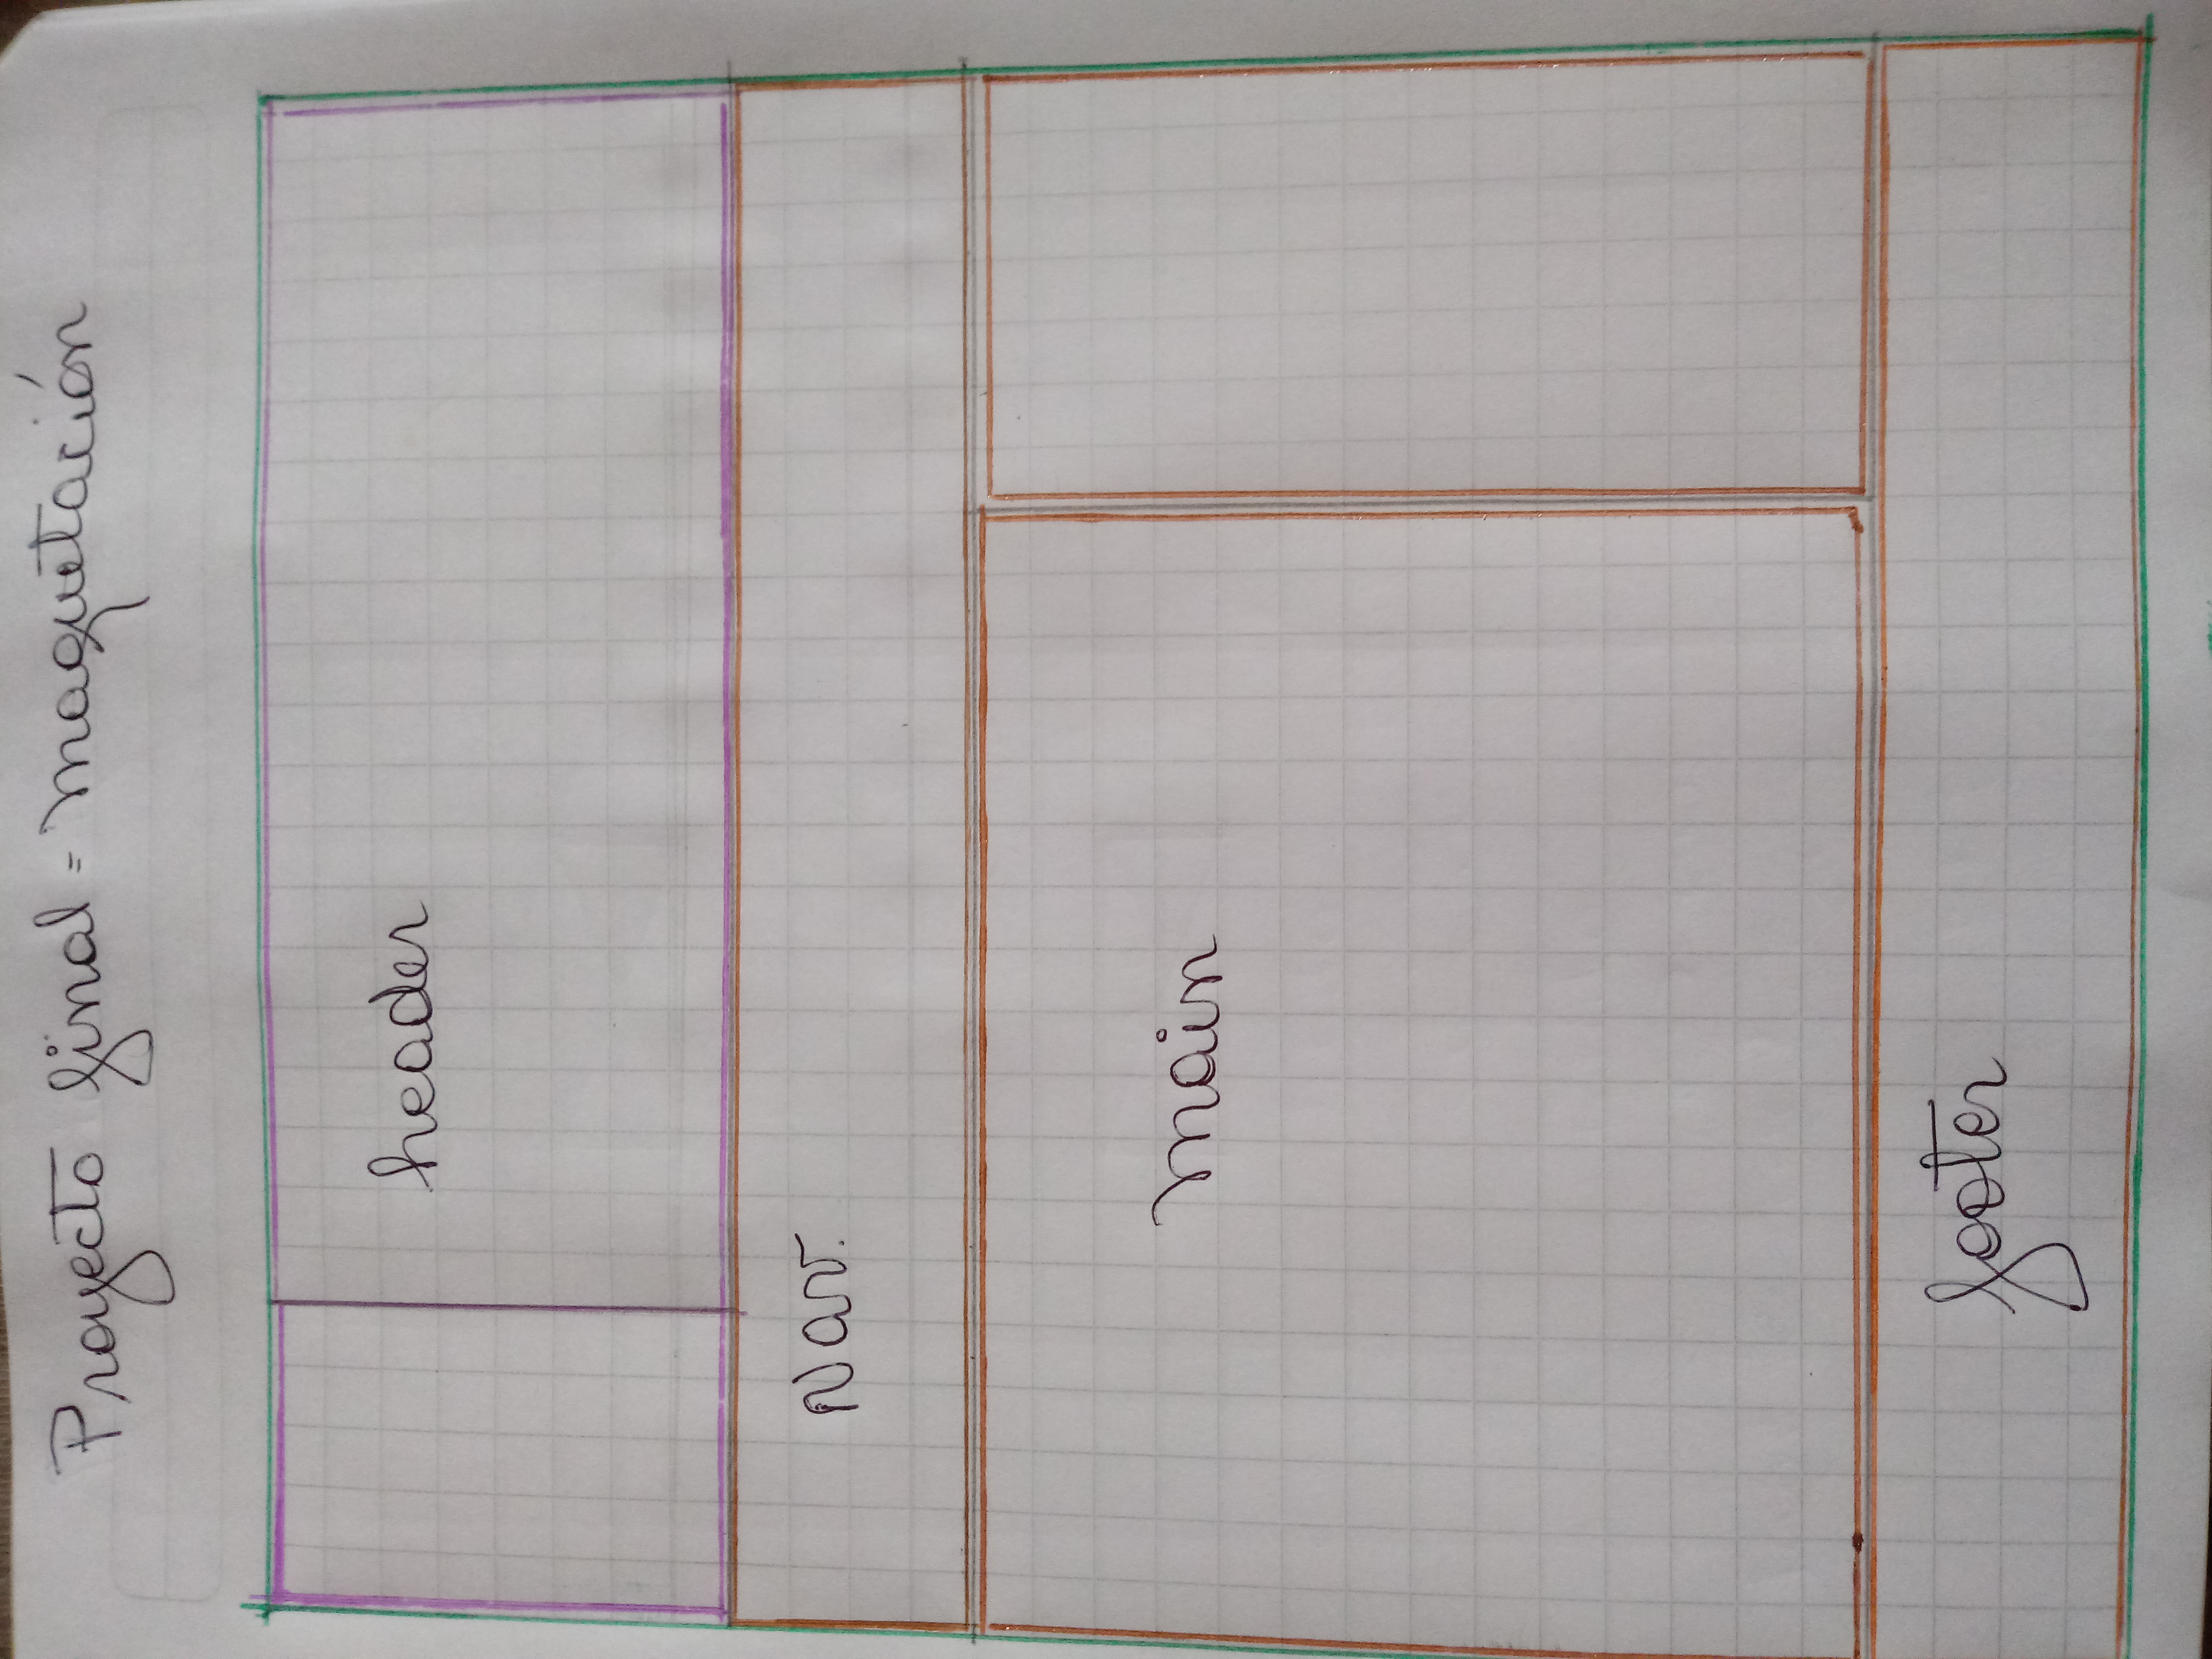 Proyecto final = maquetación
header
Nav.
main
footer